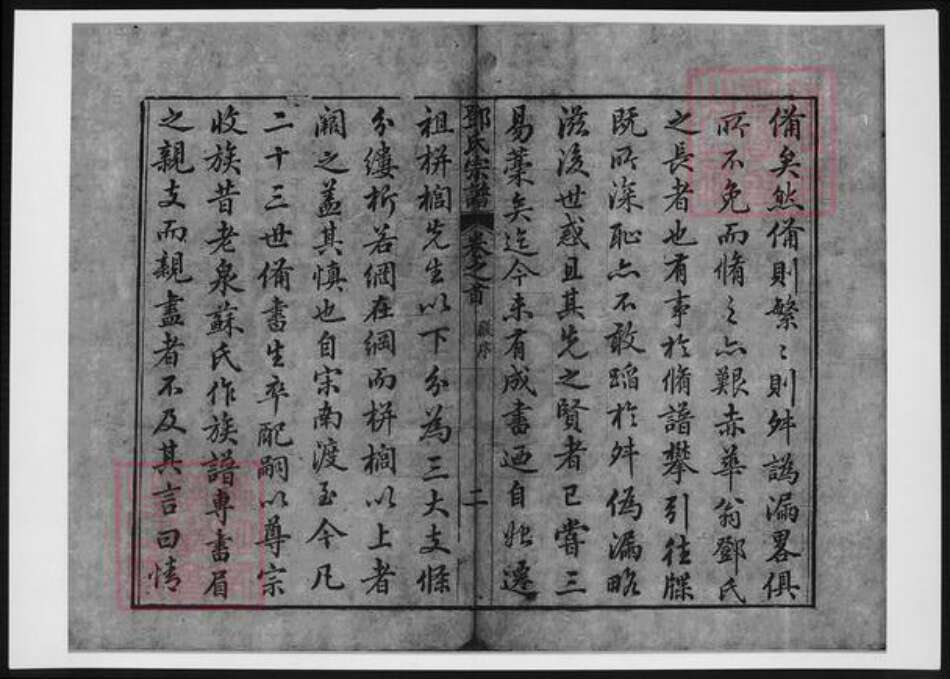 備矣然備則繁〻則舛譌漏畧俱
所不免而脩〻亦艱赤華翁鄧氏
之長者也有事於脩譜攀引往牒
既所深恥亦不敢蹈於舛偽漏略
滋後世惑且其先之賢者已嘗三
易藁矣迄今未有成書迺自始遷
鄧氏宗譜 卷之首 序 二
祖栟櫚先生以下分為三大支條
分縷析若網在綱而栟櫚以上者
闕之蓋其慎也自宋南渡至今凡
二十三世備書生卒配嗣以尊宗
收族昔老泉蘇氏作族譜專書眉
之親支而親盡者不及其言曰情